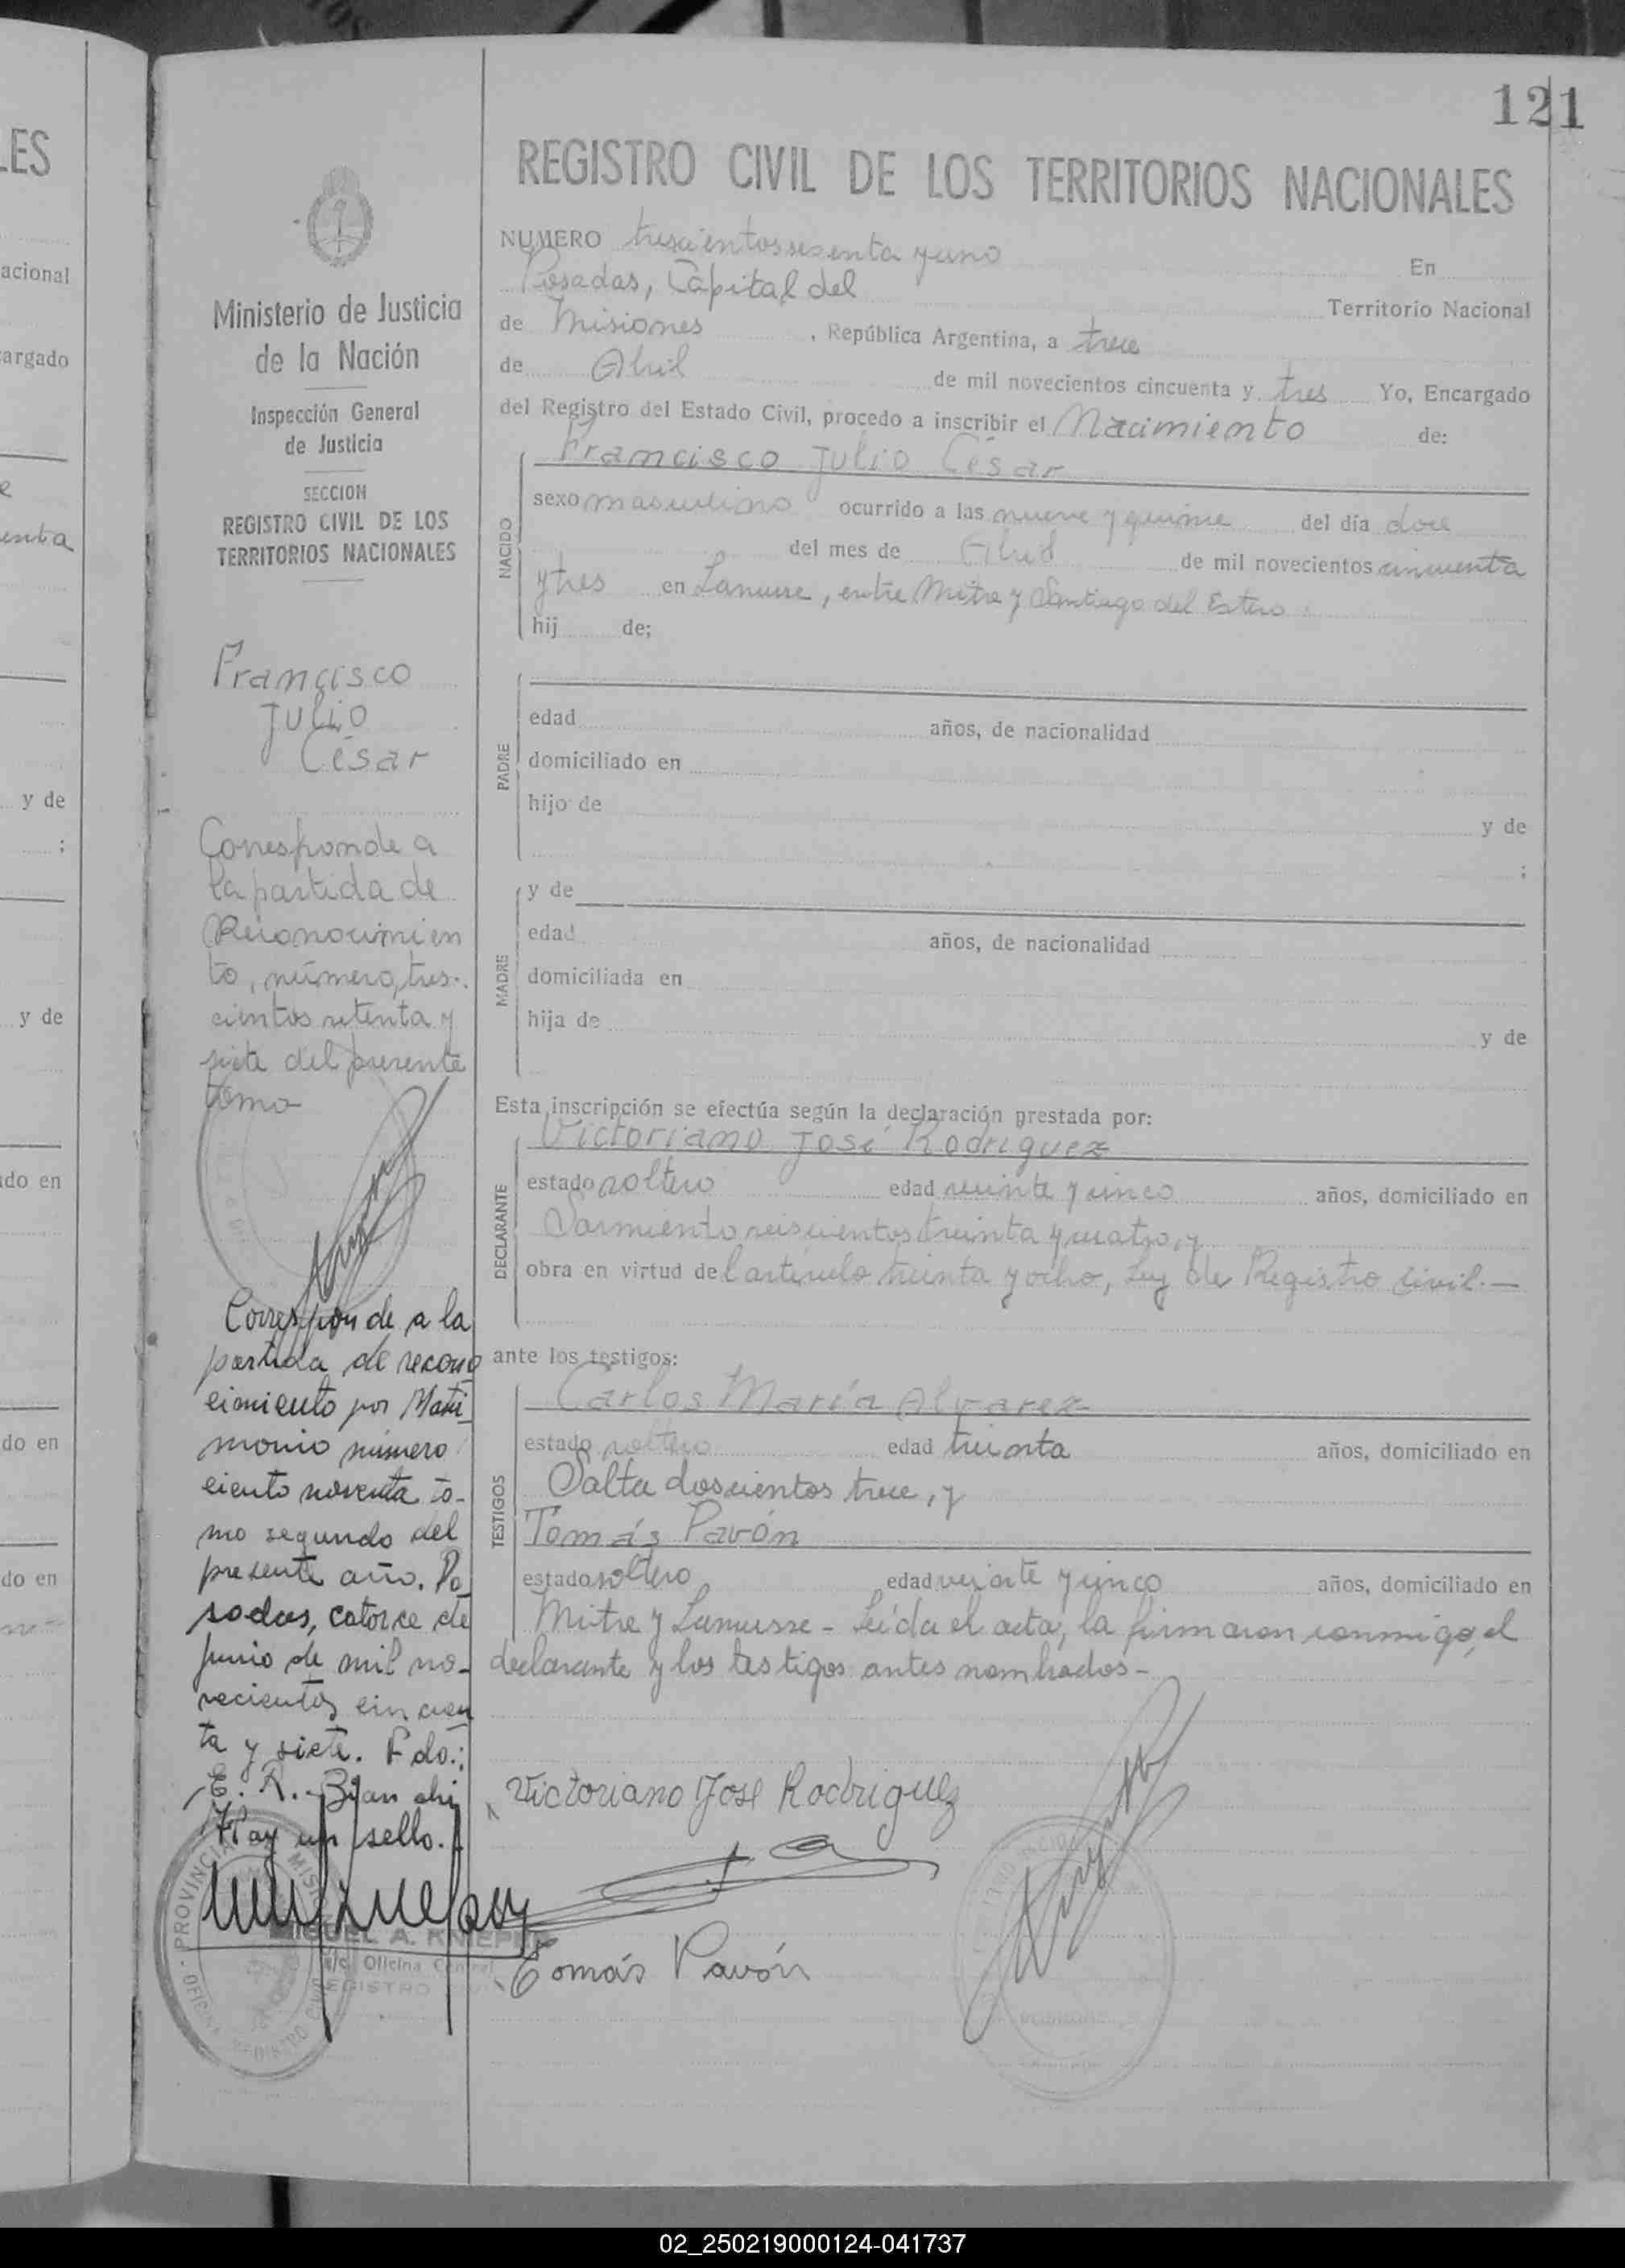 121
REGISTRO CIVIL DE LOS TERRITORIOS NACIONALES
NUMERO trescientos sesenta y uno En
Posadas, Capital del Territorio Nacional
de Misiones, República Argentina, a trece
de Abril de mil novecientos cincuenta y tres Yo, Encargado
del Registro del Estado Civil, procedo a inscribir el Nacimiento de:
NACIDO
Francisco Julio César
sexo masculino ocurrido a las nueve y quince del día doce
del mes de Abril de mil novecientos cincuenta
y tres en Lanusse, entre Mitre y Santiago del Estero
hij de;
PADRE
edad años, de nacionalidad
domiciliado en
hijo de y de
;
MADRE
y de
edad años, de nacionalidad
domiciliada en
hija de y de
Esta inscripción se efectúa según la declaración prestada por:
DECLARANTE
Victoriano José Rodriguez
estado soltero edad veinte y cinco años, domiciliado en
Sarmiento seiscientos treinta y cuatro, y
obra en virtud del artículo treinta y ocho, Ley de Registro Civil.—
ante los testigos:
TESTIGOS
Carlos María Alvarez
estado soltero edad treinta años, domiciliado en
Salta doscientos trece, y
Tomás Pavón
estado soltero edad veinte y cinco años, domiciliado en
Mitre y Lanusse - Leída el acta, la firmaron conmigo, el
declarante y los testigos antes nombrados-
Victoriano José Rodriguez
Tomás Pavón
Ministerio de Justicia
de la Nación
Inspección General
de Justicia
SECCION
REGISTRO CIVIL DE LOS
TERRITORIOS NACIONALES
Francisco
Julio
César
Corresponde a
la partida de
Reconocimien
to, número, tres-
cientos setenta y
siete del presente
tomo
Corresponde a la
partida de recono
cimiento por Matri
monio número
ciento noventa to-
mo segundo del
presente año. Po
sadas, catorce de
Junio de mil no-
vecientos cincuen
ta y siete. Fdo.:
E. R. Bianchi
Hay un sello.
PROVINCIA MISIONES
OFICINA REGISTRO CIVIL
MIGUEL A. KNIEPER
a/c. Oficina Central
REGISTRO
LES
acional
argado
e
enta
y de
;
y de
ado en
do en
do en
02_250219000124-041737